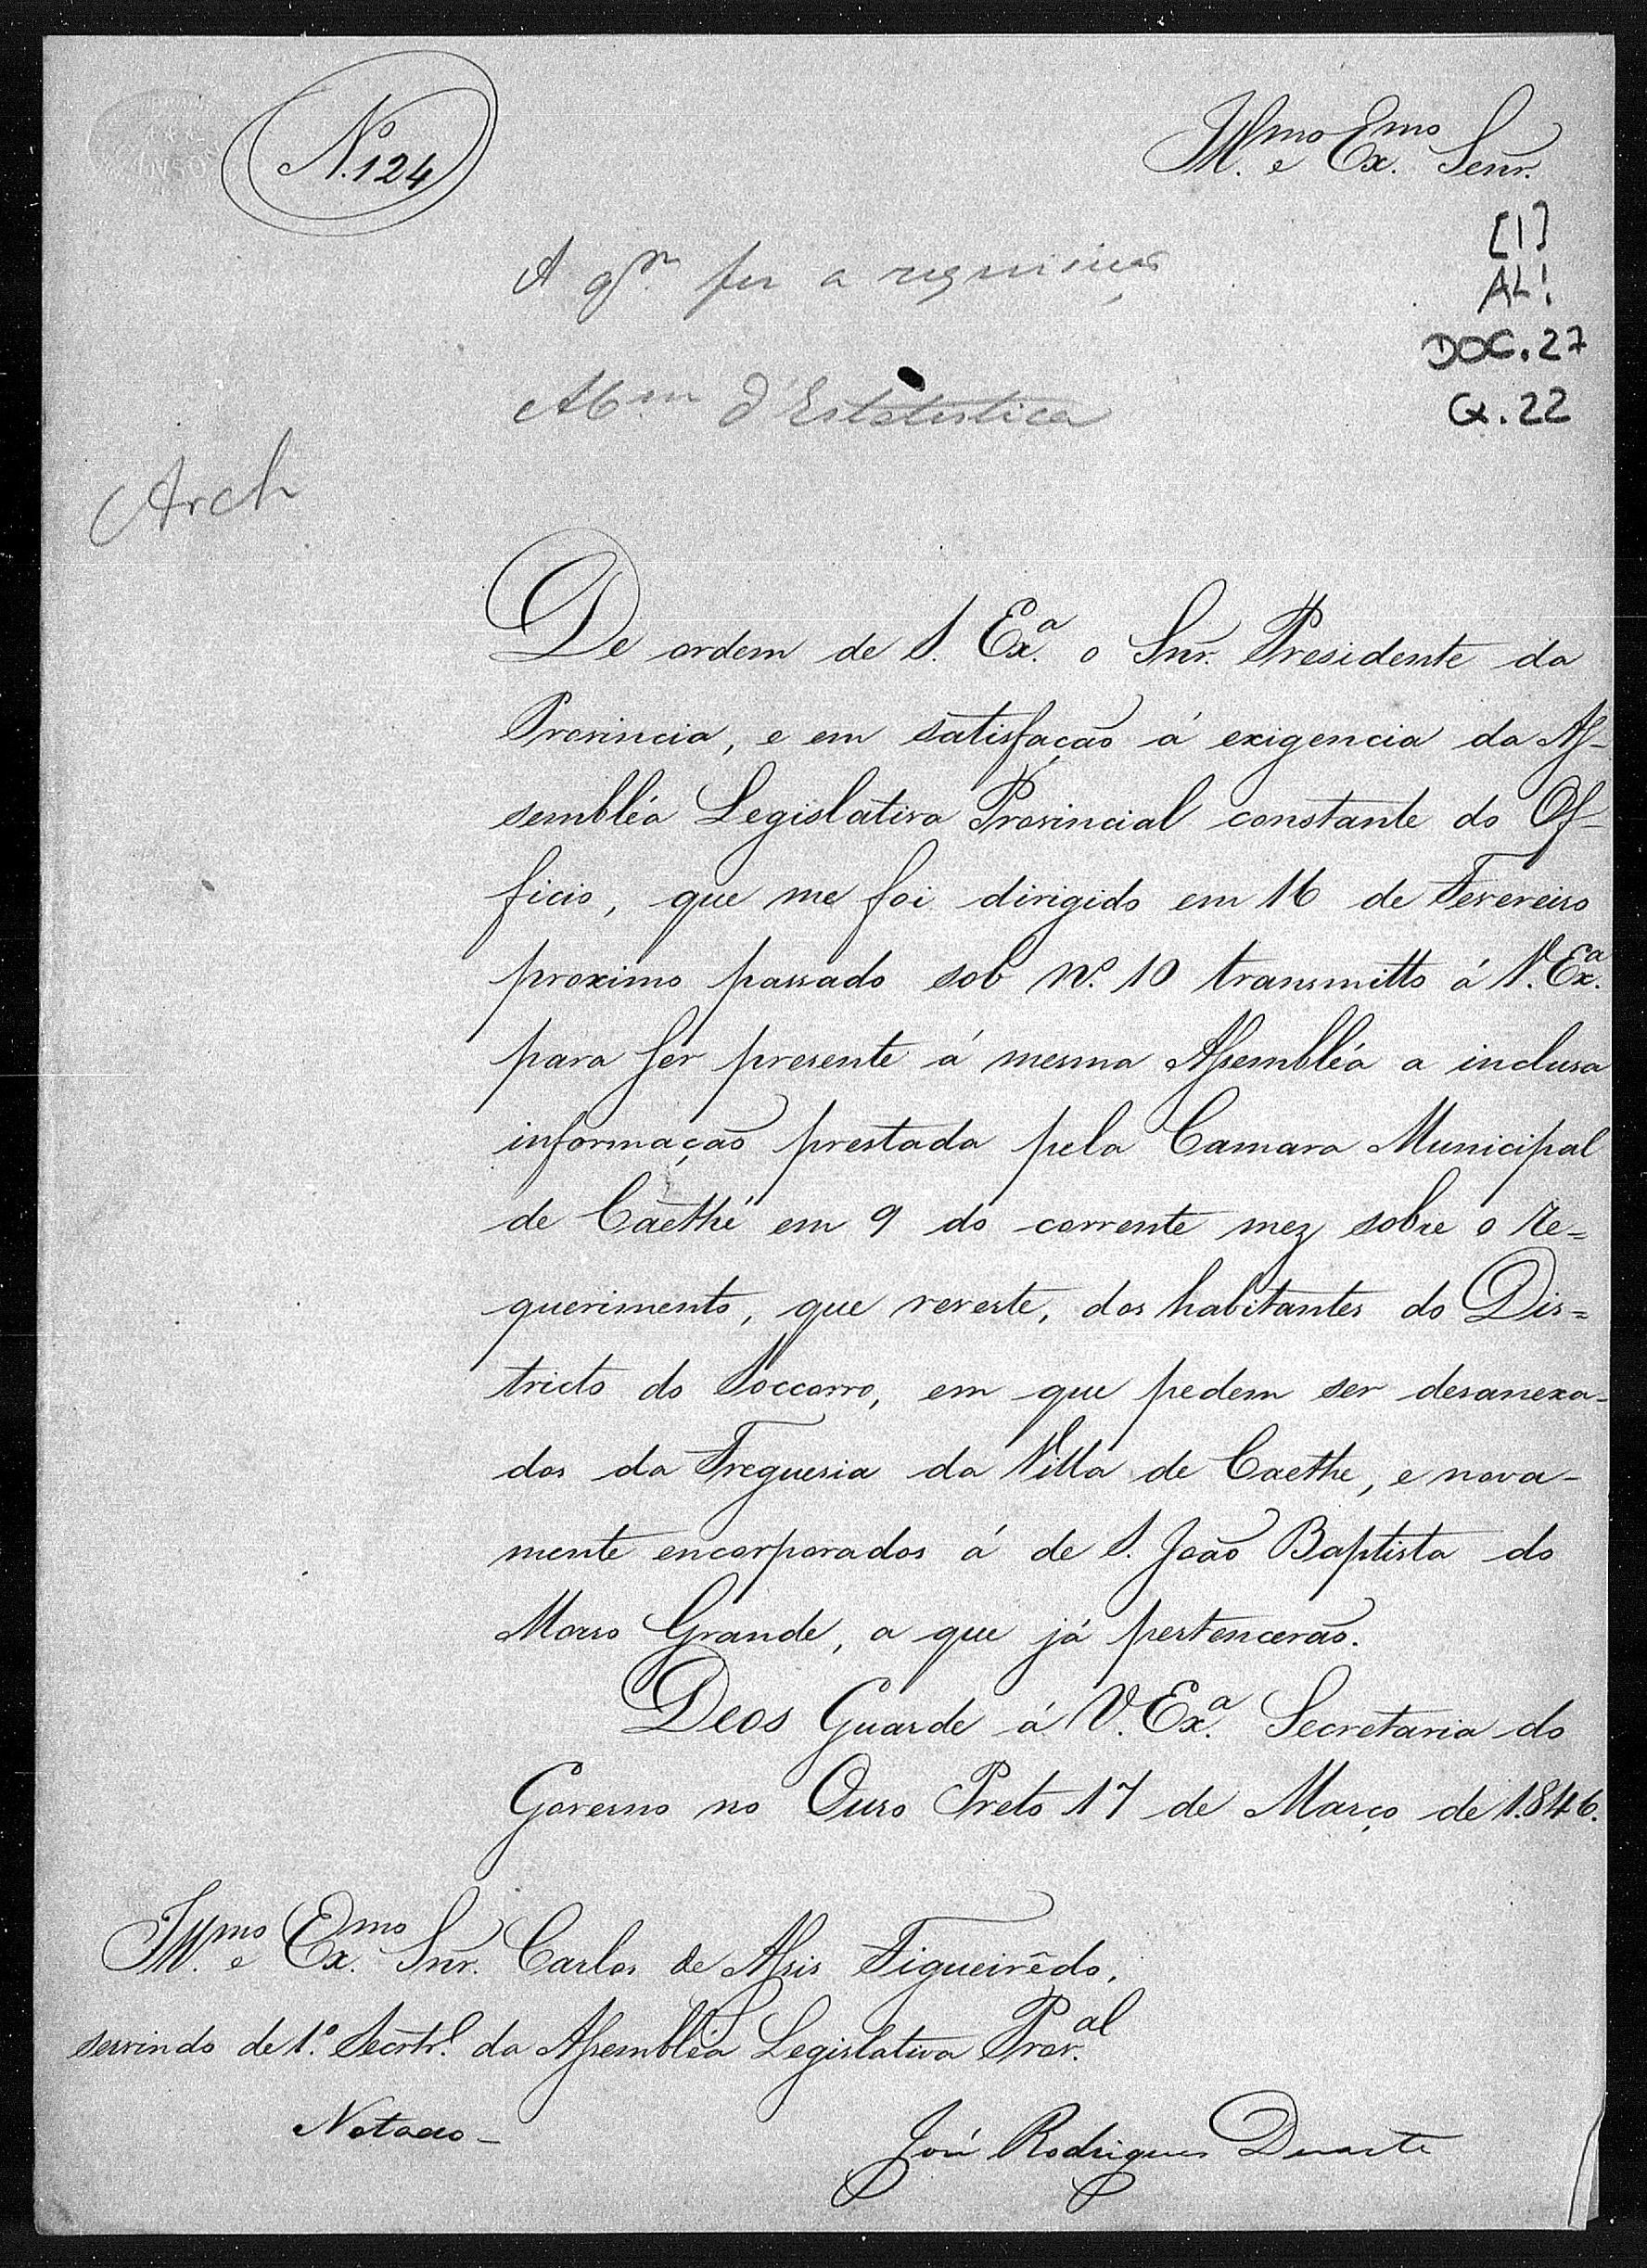 N. 124
Ill.mo e Ex.mo Senr.
[1]
AL!
DOC. 27
Q. 22
A q.m fez a requisição
d'Estatistica
Arch
De ordem de S. Ex.a o Snr. Presidente da
Provincia, e em satisfação á exigencia da As-
sembléa Legislativa Provincial constante do Of-
ficio, que me foi dirigido em 16 de Fevereiro
proximo passado sob N.º 10 transmitto á V. Ex.a
para ser presente á mesma Assembléa a inclusa
informação prestada pela Camara Municipal
de Caethé em 9 do corrente mez sobre o re=
querimento, que reverte, dos habitantes do Dis=
tricto do Soccorro, em que pedem ser desanexa-
dos da Freguesia da Villa de Caethe, e nova-
mente encorporados á de S. João Baptista do
Morro Grande, a que já pertencerão.
Deos Guarde á V. Ex.a Secretaria do
Governo no Ouro Preto 17 de Março de 1.846.
Ill.mo e Ex.mo Snr. Carlos de Assis Figueirêdo,
servindo de 1.º Secrtr.º da Assembléa Legislativa Prov.al
José Rodrigues Duarte